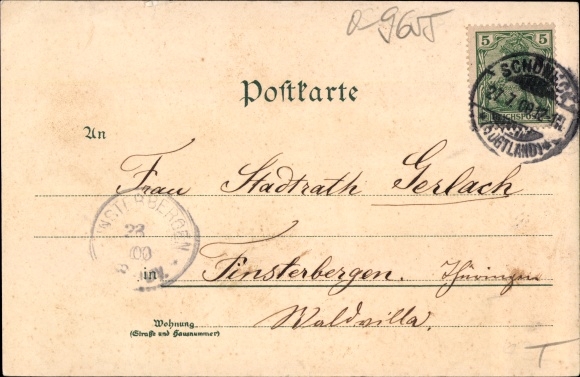 5 5
REICHSPOST
SCHÖNECK
(VOGTLAND)
Postkarte
An
Frau Stadtrath Gerlach
FINSTERBERGEN
23
00
in Finsterbergen. Thüringen
Waldvilla.
Wohnung
(Straße und Hausnummer)
T